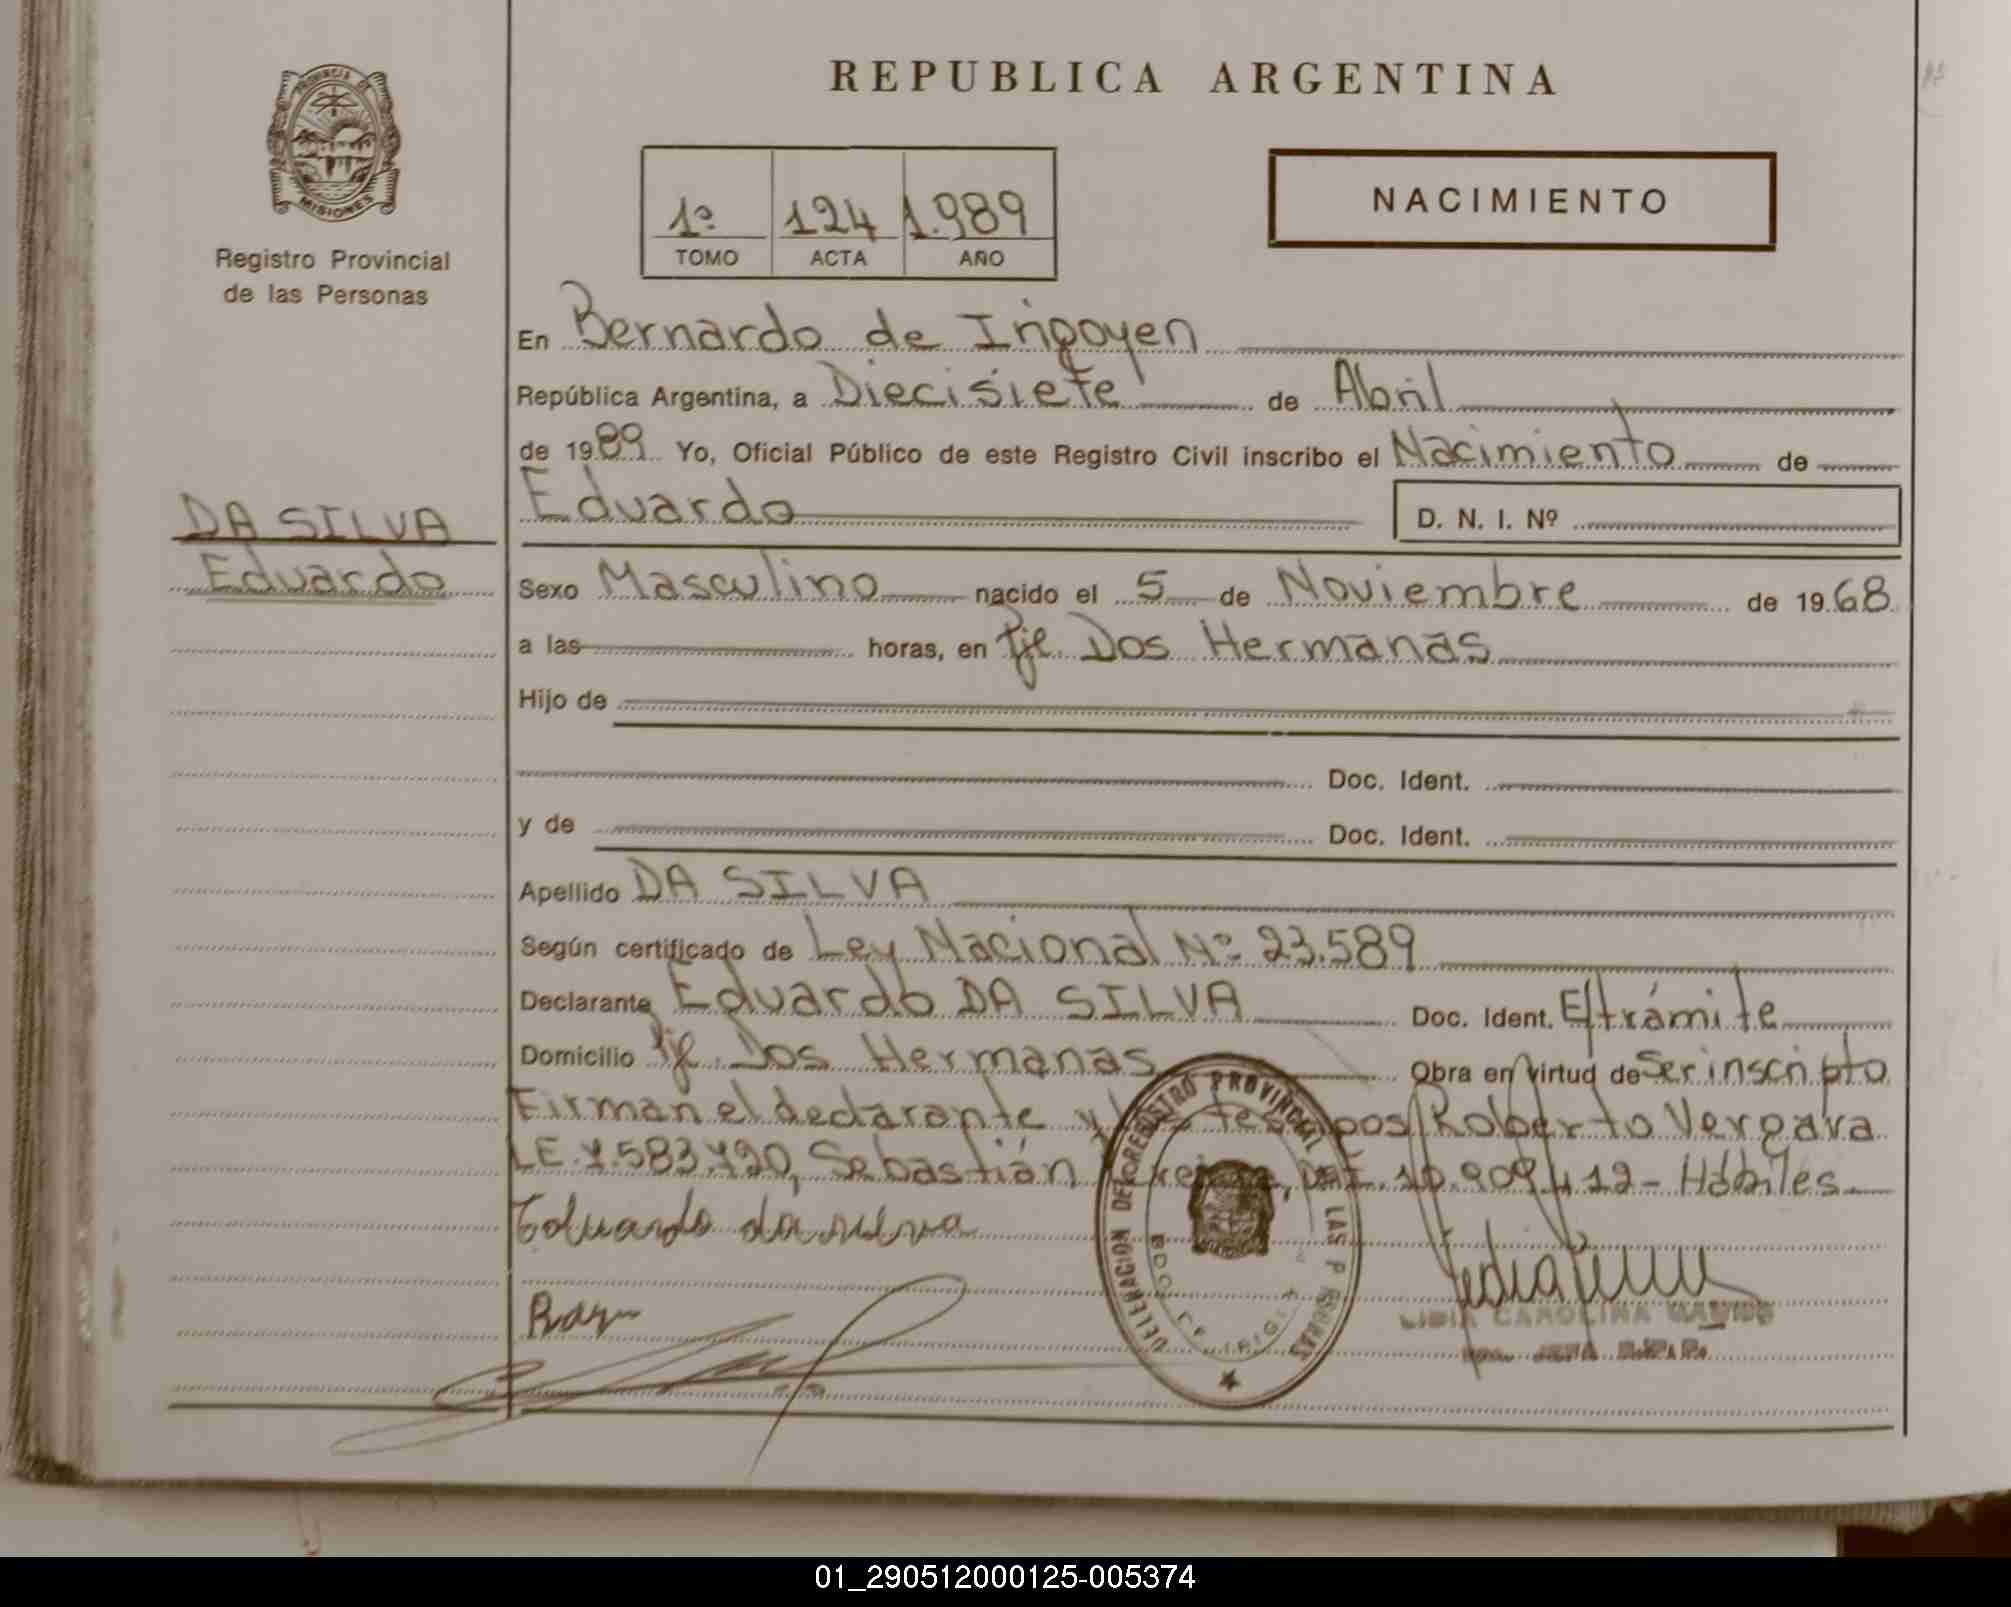 PROVINCIA DE
MISIONES
Registro Provincial
de las Personas
REPUBLICA ARGENTINA
1º 124 1.989
TOMO ACTA AÑO
NACIMIENTO
En Bernardo de Irigoyen
República Argentina, a Diecisiete de Abril
de 1989 Yo, Oficial Público de este Registro Civil inscribo el Nacimiento de
Eduardo D. N. I. Nº
DA SILVA
Eduardo
Sexo Masculino nacido el 5 de Noviembre de 1968
a las horas, en Pje. Dos Hermanas
Hijo de
Doc. Ident.
y de Doc. Ident.
Apellido DA SILVA
Según certificado de Ley Nacional Nº 23.589
Declarante Eduardo DA SILVA Doc. Ident. E/trámite
Domicilio Pje. Dos Hermanas Obra en virtud de Ser inscripto
Firman el declarante y los testigos Roberto Vergara
LE. 7.583.790, Sebastián DNI. 10.909.412 - Hábiles
Eduardo da silva
DELEGACION DEL REGISTRO PROVINCIAL DE LAS PERSONAS
LIDIA CAROLINA
01_290512000125-005374